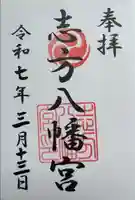 奉拝
志方八幡宮
令和七年三月十三日